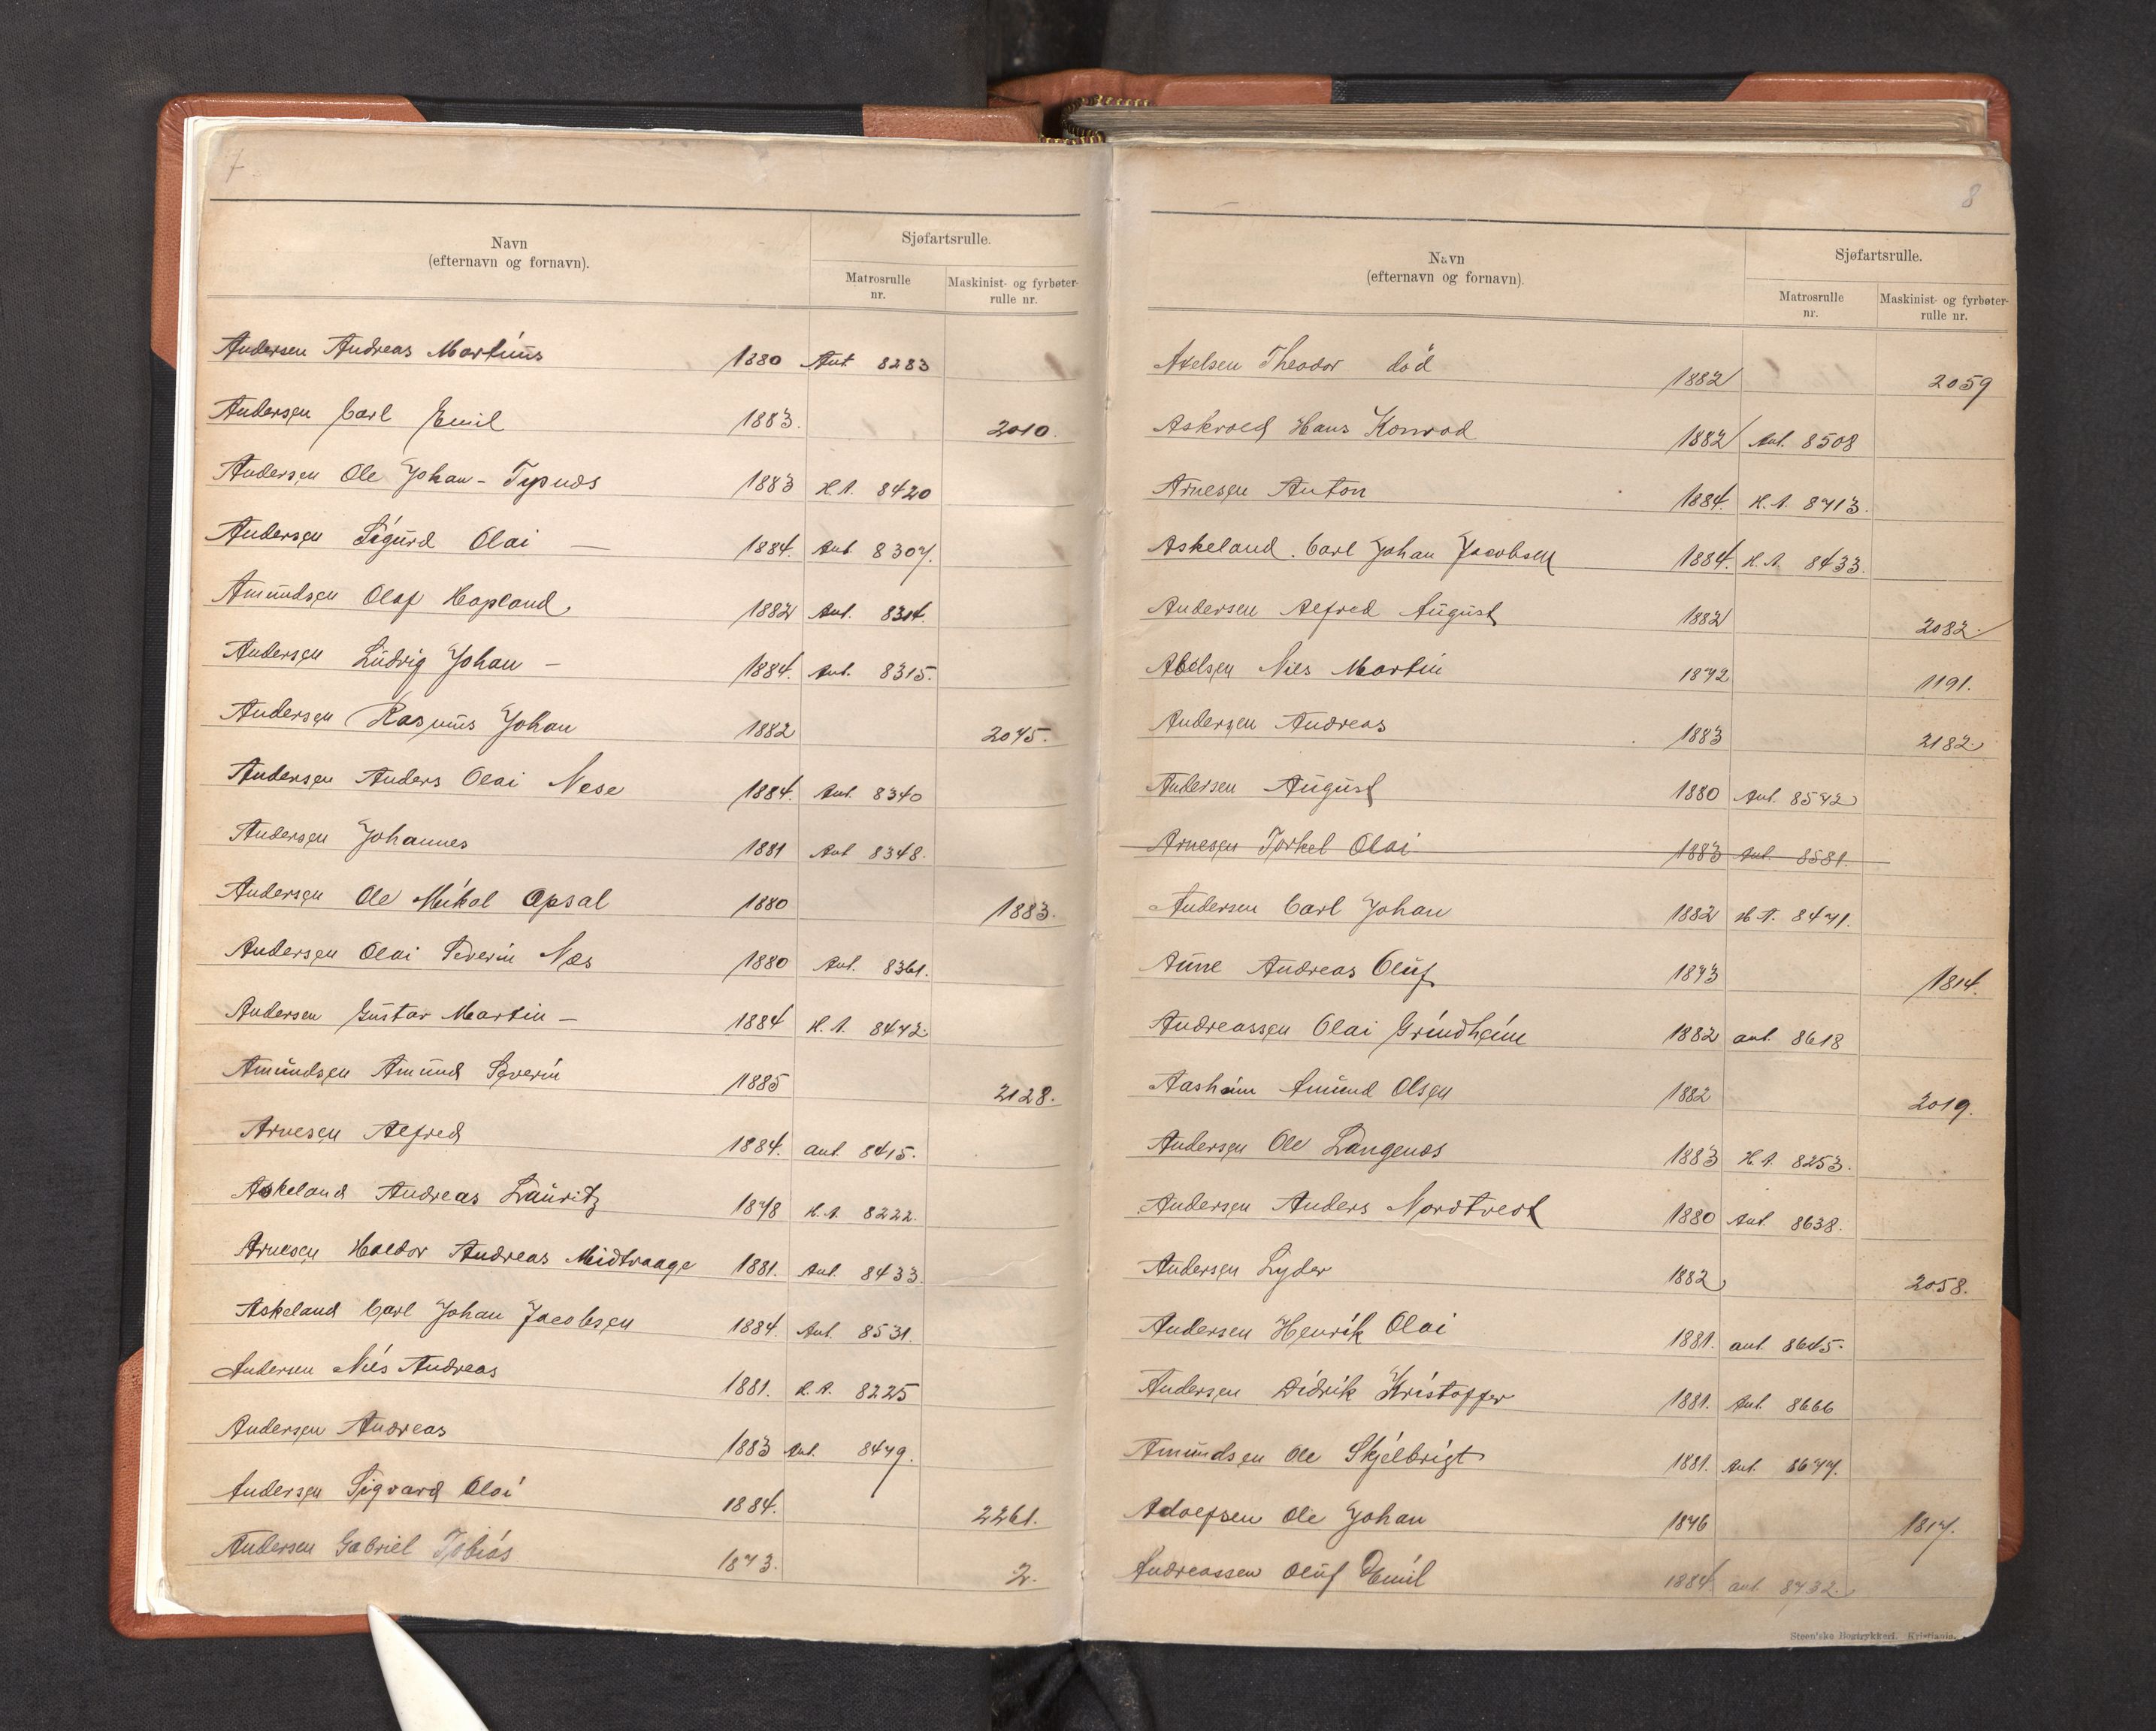 7
Navn
(efternavn og fornavn).
Sjøfartsrulle.
Matrosrulle
nr.
Maskinist- og fyrbøter-
rulle nr.
Andersen Andreas Martinus 1880 Ant. 8283
Andersen Carl Emil 1883. 2010.
Andersen Ole Johan - 1883 H.A. 8420
Andersen Sigurd Olai — 1884. Ant. 8307.
Amundsen Olaf Hopland 1882 Ant. 8314.
Andersen Ludvig Johan — 1884. Ant. 8315.
Andersen Rasmus Johan 1882 2075.
Andersen Anders Olai Nese 1884. Ant. 8340
Andersen Johannes 1881 Ant 8348.
Andersen Ole Mikal Opsal 1880 1883.
Andersen Olai Severin Næs 1880 Ant. 8361.
Andersen Gustav Martin — 1884 H.A. 8472
Amundsen Amund Severin 1885 2128.
Arnesen Alfred 1884. ant. 8415.
Askeland Andreas Lauritz 1878 H.A. 8222.
Arnesen Haldor Andreas Midtraage 1881. Ant. 8433.
Askeland Carl Johan Jacobsen 1884. Ant. 8531.
Andersen Nils Andreas 1881. H.A. 8225
Andersen Andreas 1883 Ant. 8479.
Andersen Sigvard Olai 1884. 2261.
Andersen Gabriel Tobias 1873. 2.
8
Navn
(efternavn og fornavn).
Sjøfartsrulle.
Matrosrulle
nr.
Maskinist- og fyrbøter-
rulle nr.
Axelsen Theodor död 1882 2059
Askvold Hans Konrad 1882 Ant. 8508
Arnesen Anton 1884. H.A. 8713.
Askeland. Carl Johan Jacobsen 1884. H.A. 8433.
Andersen Alfred August 1882 2082.
Abelsen Nils Martin 1872 1191.
Andersen Andreas 1883 2182.
Andersen August 1880 Ant. 8572
Arnesen Torkel Olai 1883 Ant. 8581.
Andersen Carl Johan 1882 H.A. 8471.
Aune Andreas Oluf 1873 1814.
Andreassen Olai Grindheim 1882 ant. 8618
Aasheim Amund Olsen 1882 2019.
Andersen Ole Langenæs 1883 H.A. 8253.
Andersen Anders Nordtvedt 1880 Ant. 8638.
Andersen Lyder 1882 2058.
Andersen Henrik Olai 1881. ant. 8645.
Andersen Didrik Kristoffer 1881. Ant. 8666
Amundsen Ole Skjelbrigt 1881. Ant. 8677.
Adolfsen Ole Johan 1876 1817.
Andreassen Oluf Emil 1884. ant. 8732.
Steen'ske Bogtrykkeri. Kristiania.